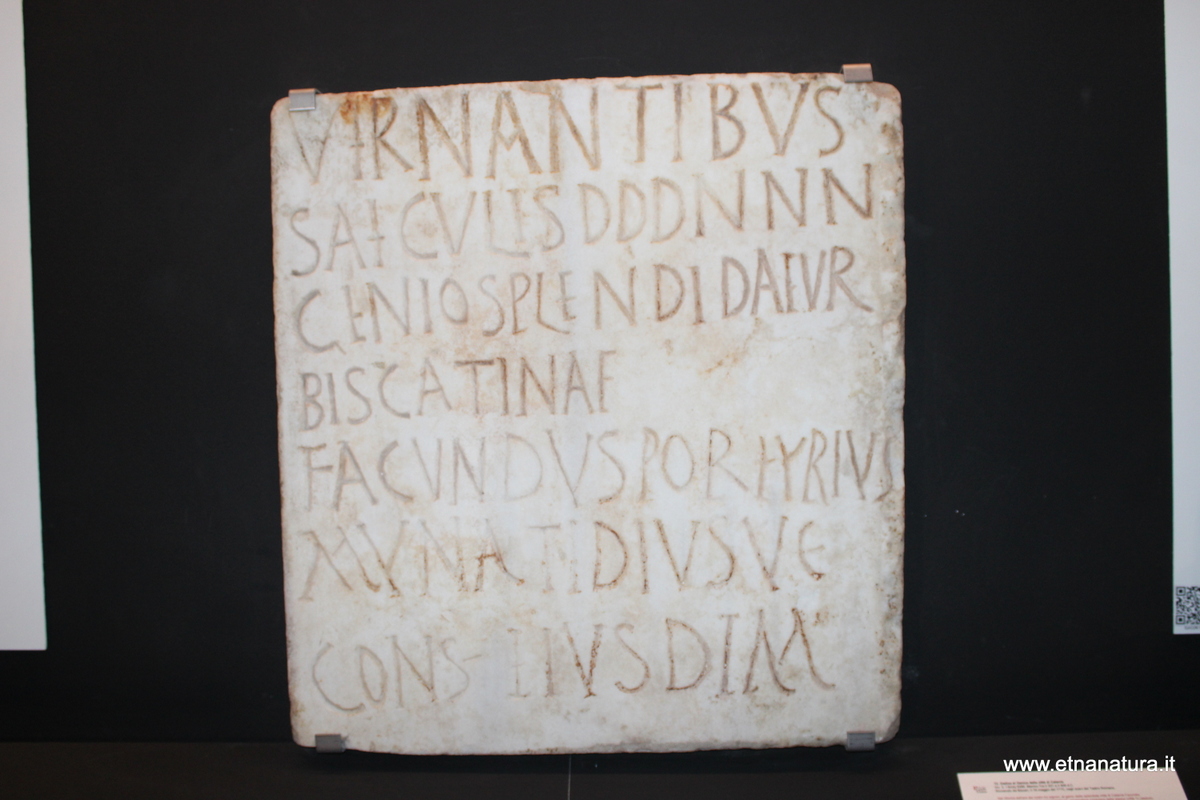 VIRNANTIBVS
SAECVLIS DDDNNN
GENIO SPLENDIDAE VR
BIS CATINAE
FACVNDVS PORHYRIVS
MVNATIDIVS VC
CONS EIVSDEM
www.etnanatura.it